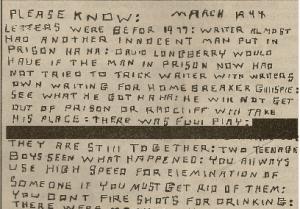 PLEASE KNOW: MARCH 1994
LETTERS WERE BEFOR 1977: WRITER ALMOST
HAD ANOTHER INNOCENT MAN PUT IN
PRISON HA HA: DAVID LONGBERRY WOULD
HAVE IF THE MAN IN PRISON NOW HAD
NOT TRIED TO TRICK WRITER WITH WRITERS
OWN WRITING FOR HOMEBREAKER GILLISPIE:
SEE WHAT HE GOT HA HA: HE WILL NOT GET
OUT OF PRISON OR RADCLIFF WILL TAKE
HIS PLACE: THERE WAS FOUL PLAY:
THEY ARE STILL TOGETHER: TWO TEENAGE
BOYS SEEN WHAT HAPPENED: YOU ALWAYS
USE HIGH SPEED FOR ELEMINATION OF
SOMEONE IF YOU MUST GET RID OF THEM:
YOU DONT FIRE SHOTS FOR DRINKING:
THERE WERE NO